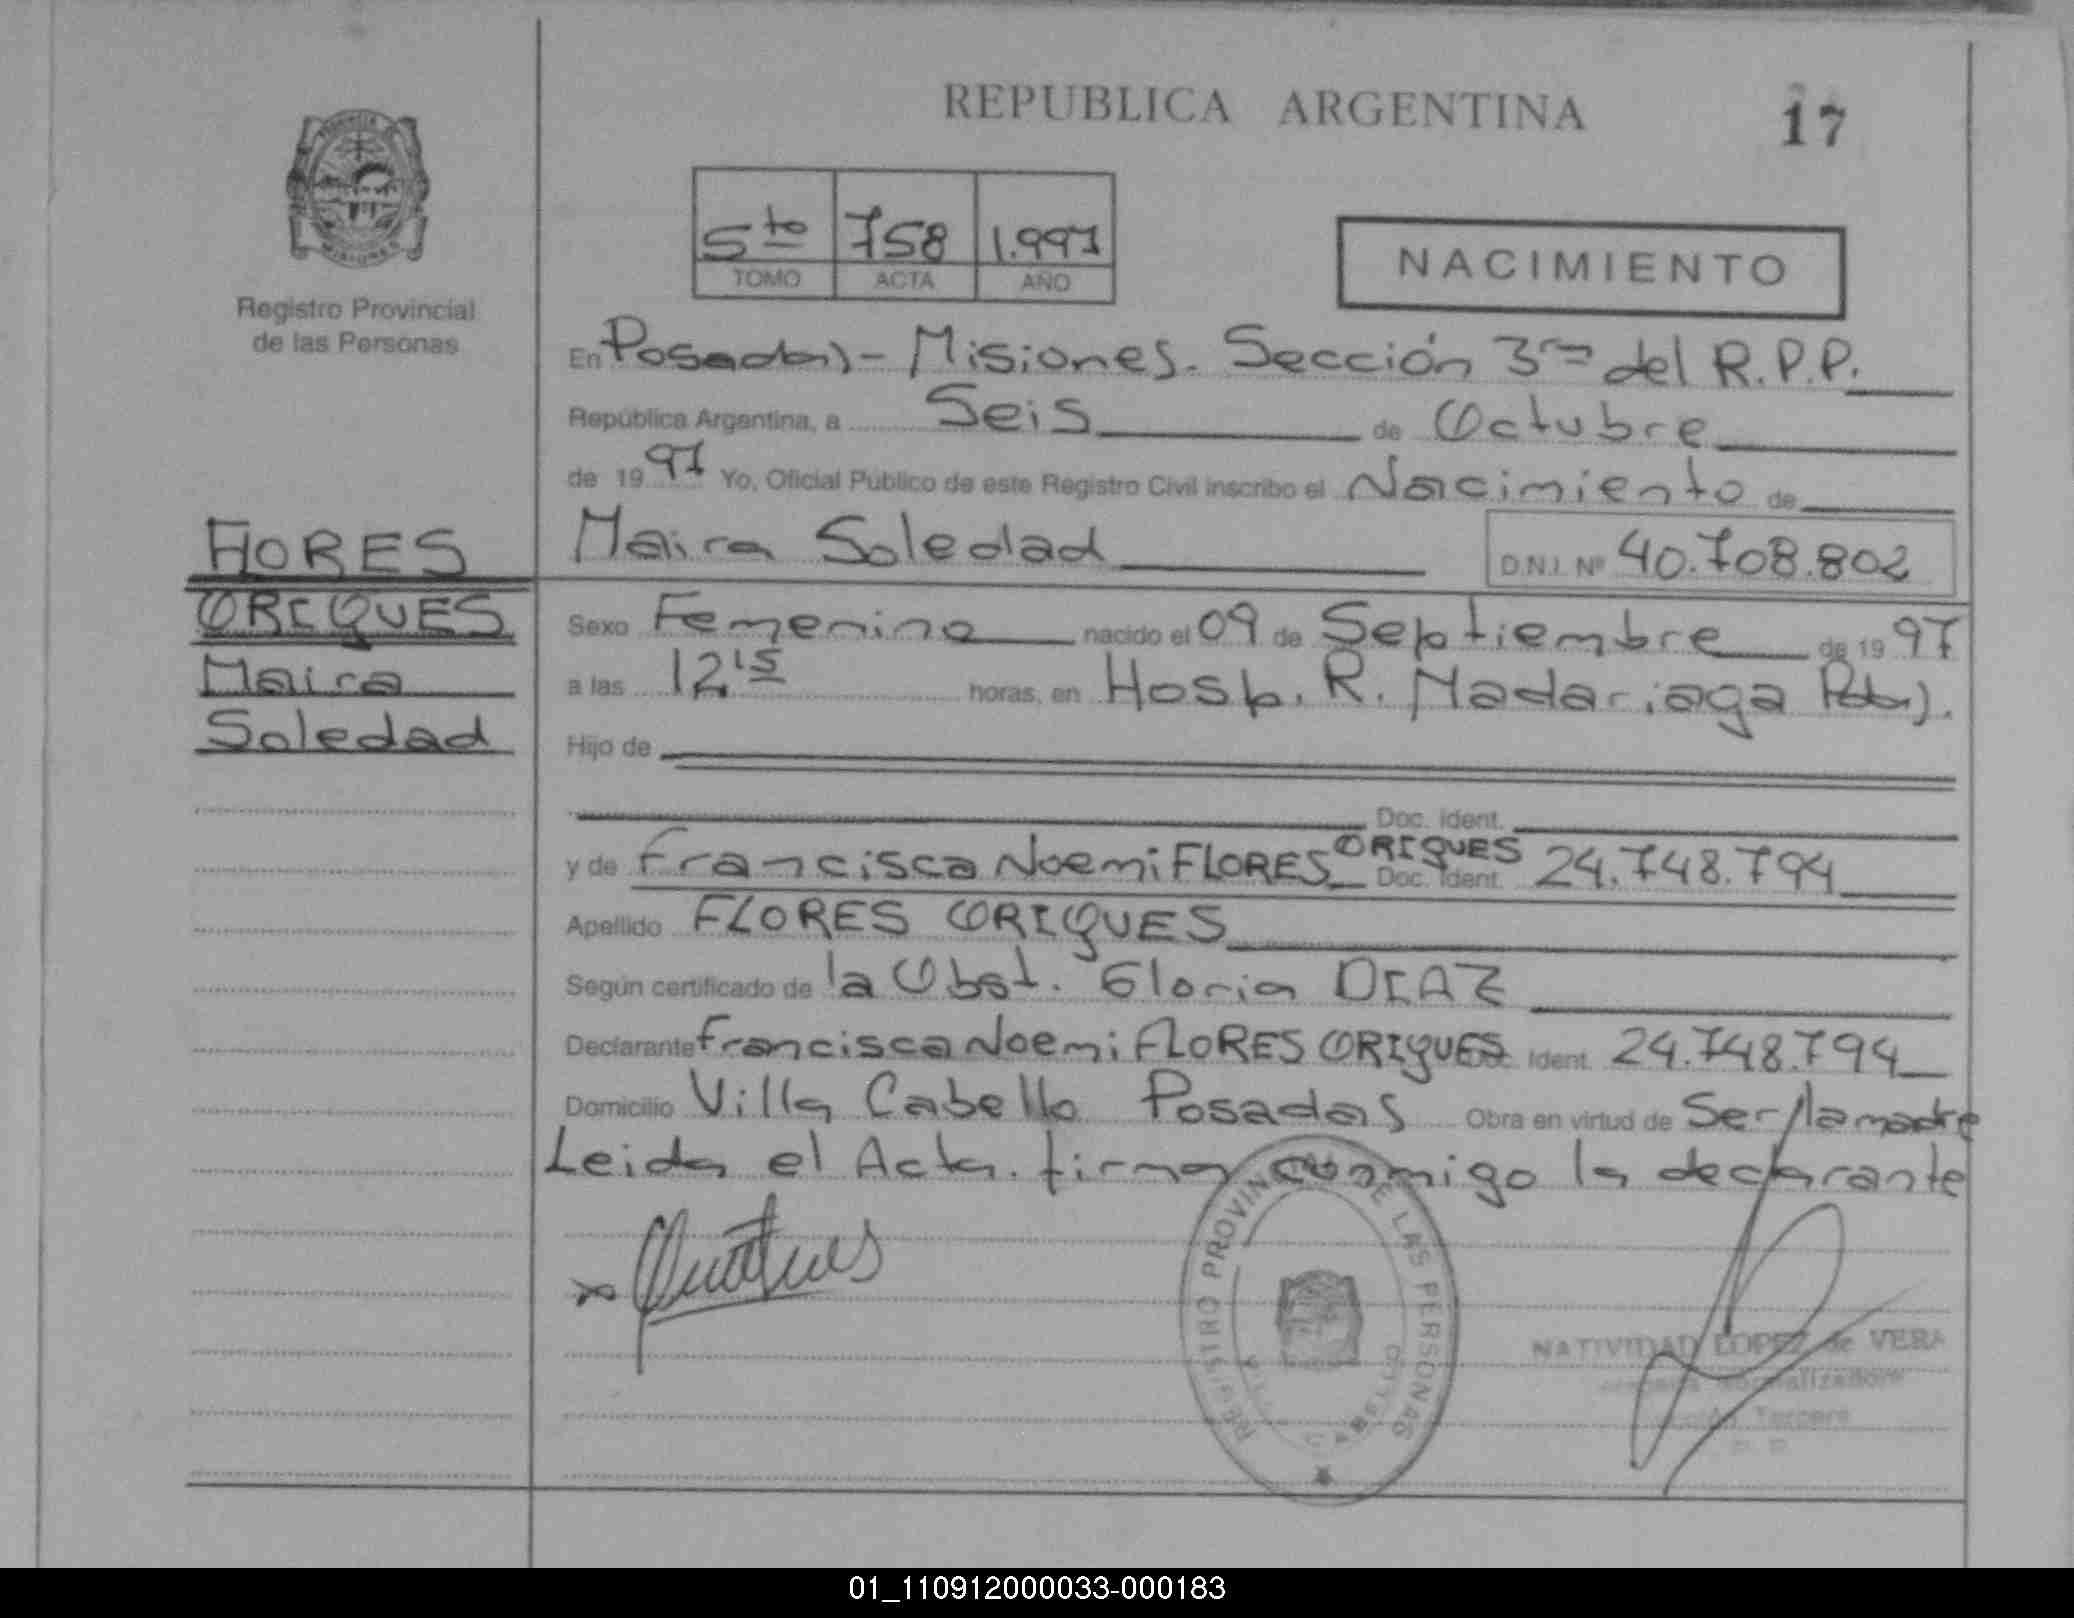 REPUBLICA ARGENTINA
17
5to 758 1.997
TOMO ACTA AÑO
NACIMIENTO
Registro Provincial
de las Personas
En Posadas - Misiones. Sección 3ra del R.P.P.
República Argentina, a Seis de Octubre
de 1997 Yo, Oficial Público de este Registro Civil inscribo el Nacimiento de
Maira Soledad D.N.I. Nº 40.708.802
FLORES
ORIQUES
Maira
Soledad
Sexo Femenino nacido el 09 de Septiembre de 1997
a las 12 15 horas, en Hosp. R. Madariaga Pdas.
Hijo de
Doc. Ident.
y de Francisca Noemi FLORES ORIQUES Doc. Ident. 24.748.794
Apellido FLORES ORIQUES
Según certificado de la Obst. Gloria DIAZ
Declarante Francisca Noemi FLORES ORIQUES Ident. 24.748.794
Domicilio Villa Cabello Posadas Obra en virtud de Ser la madre
Leida el Acta. firma conmigo la declarante
REGISTRO PROVINCIAL DE LAS PERSONAS
VILLA CABELLO
NATIVIDAD LOPEZ de VERA
Tercera
01_110912000033-000183